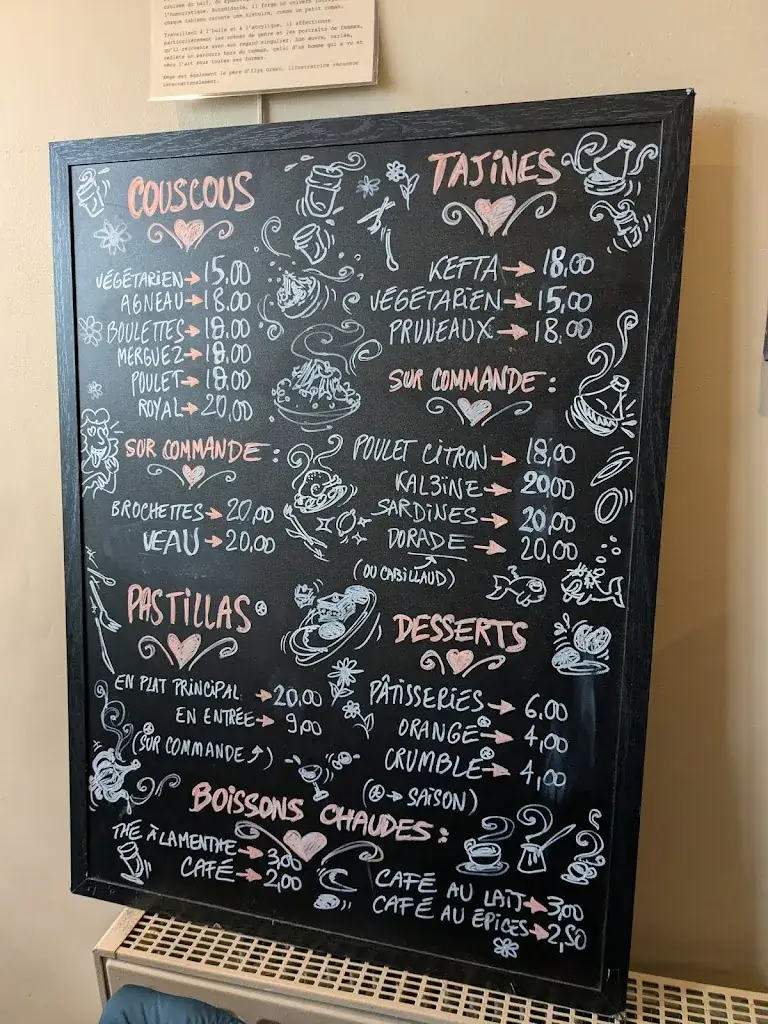 croisée du naïf, du symbo
l'humoristique. Autodidacte, il forge un univers
chaque tableau raconte une histoire, comme un petit roman.
Travaillant à l'huile et à l'acrylique, il affectionne
particulièrement les scènes de genre et les portraits de femmes,
qu'il réinvente avec son regard singulier. Son œuvre, variée,
reflète un parcours hors du commun, celui d'un homme qui a vu et
vécu l'art sous toutes ses formes.
est également le père d'Ilya Green, illustratrice reconnue
internationalement.
COUSCOUS
VÉGÉTARIEN → 15,00
AGNEAU → 18,00
BOULETTES → 18,00
MERGUEZ → 18,00
POULET → 18,00
ROYAL → 20,00
SUR COMMANDE :
BROCHETTES → 20,00
VEAU → 20,00
PASTILLAS
EN PLAT PRINCIPAL → 20,00
EN ENTRÉE → 9,00
(SUR COMMANDE)
TAJINES
KEFTA → 18,00
VÉGÉTARIEN → 15,00
PRUNEAUX → 18,00
SUR COMMANDE :
POULET CITRON → 18,00
KAL3INE → 20,00
SARDINES → 20,00
DORADE → 20,00
(OU CABILLAUD)
DESSERTS
PÂTISSERIES → 6,00
ORANGE → 4,00
CRUMBLE → 4,00
(→ SAISON)
BOISSONS CHAUDES :
THÉ À LA MENTHE → 3,00
CAFÉ → 2,00
CAFÉ AU LAIT → 3,00
CAFÉ AU ÉPICES → 2,50